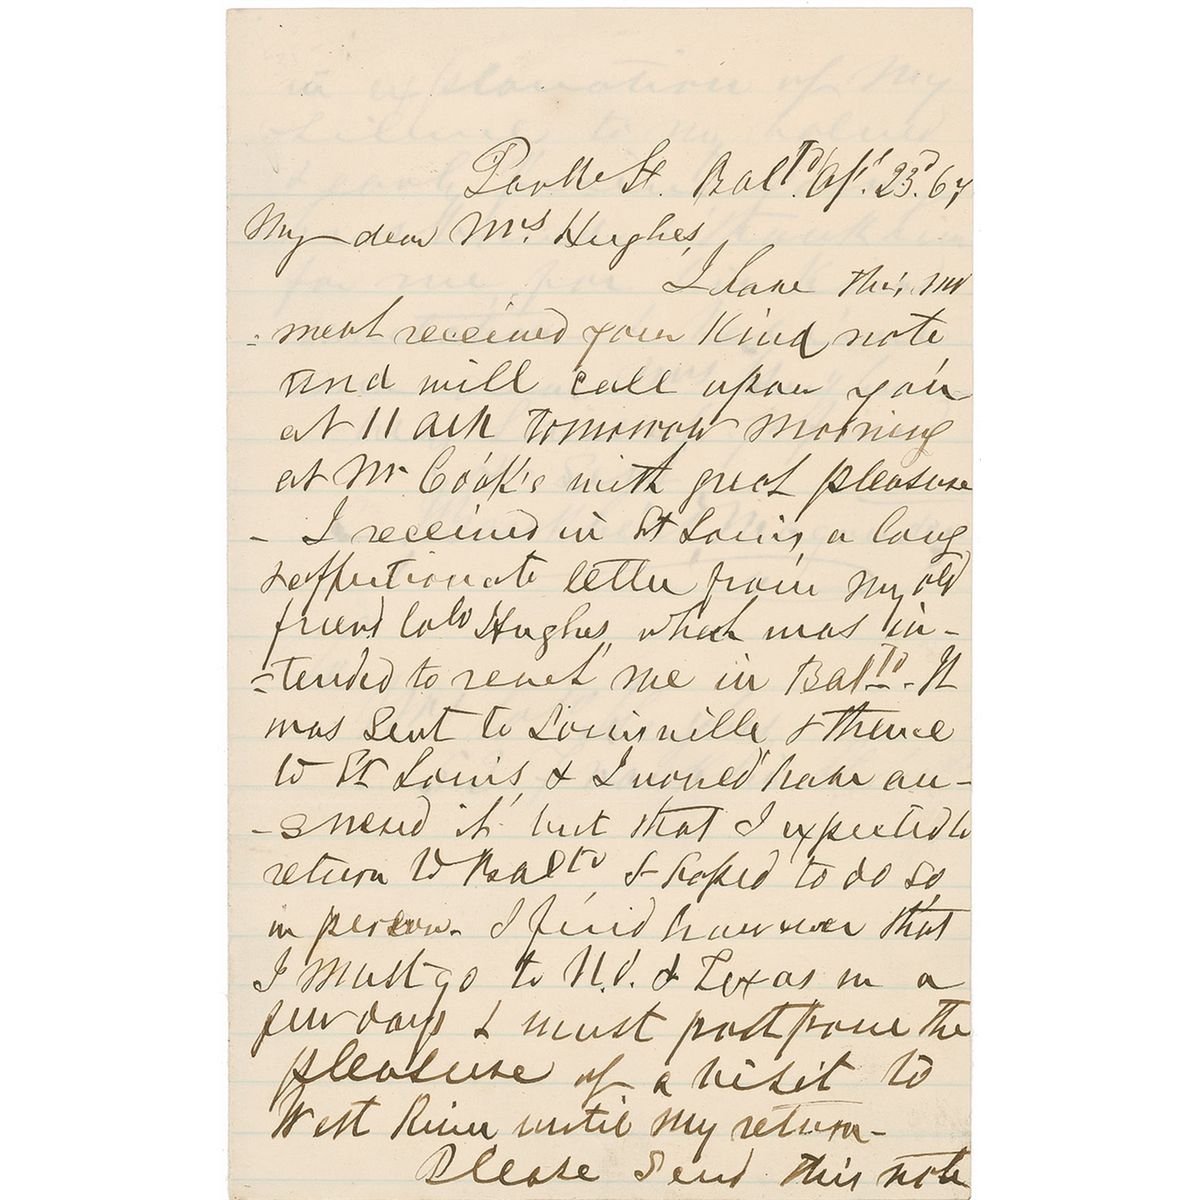 Park St. Balto. Ap'. 23d. 67
My dear Mrs Hughes,
I have this mo
-ment received your kind note
and will call upon you
at 11 o'clk tomorrow morning
at Mr Cook's with great pleasure
- I received in St Louis, a long
& affectionate letter from my old
friend Colo Hughes, which was in-
-tended to reach me in Balto. It
was sent to Louisville & thence
to St Louis, & I would have an-
-swered it but that I expected to
return to Balto & hoped to do so,
in person. I find however that
I must go to N.O. & Texas in a
few days & must postpone the
pleasure of a visit to
West River until my return-
Please send this note